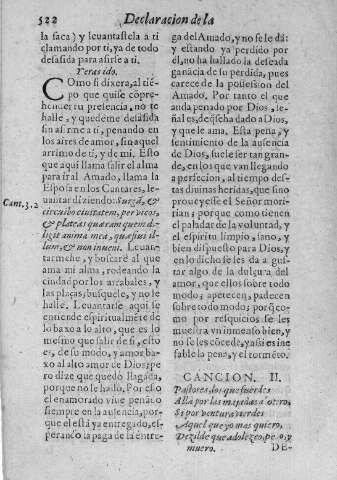 522 Declaracion de la
la saca) y leuantastela a ti
clamando por ti, ya de todo
desasida para asirse a ti.
Y eras ido.
Como si dixera, al tiẽ-
po que quise cõpre-
hender tu presencia, no te
halle, y quedéme desasida
sin asirme a ti, penando en
los aires de amor, sin aquel
arrimo de ti, y de mi. Esto
que aqui llama salir el alma
para ir al Amado, llama la
Esposa en los Cantares, le-
uantar diziendo: Surgã, &
Cant. 3. 2
circuibo ciuitatem, per vicos,
& plateas quæram quem di-
ligit anima mea, quæsiui il-
lum, & non inueni. Leuan-
tarmehe, y buscaré al que
ama mi alma, rodeando la
ciudad por los arrabales, y
las plaças, busquèle, y no le
halle. Leuantarse aqui se
entiende espiritualmẽte de
lo baxo a lo alto, que es lo
mesmo que salir de si, esto
es, de su modo, y amor ba-
xo al alto amor de Dios; pe-
ro dize que quedo llagada,
porque no le hallo. Por esso
el enamorado viue penãdo
siempre en la ausencia, por-
que el està ya entregado, es-
perando la paga de la entre-
ga del Amado, y no se le dá:
y estando ya perdido por
él, no ha hallado la deseada
ganãcia de su perdida, pues
carece de la possession del
Amado. Por tanto el que
anda penado por Dios, se-
ñal es, que se ha dado a Dios,
y que le ama. Esta pena, y
sentimiento de la ausencia
de Dios, suele ser tan gran-
de, en los que van llegando
a perfeccion, al tiempo des-
tas diuinas heridas, que sino
proueyesse el Señor mori-
rian; porque como tienen
el paladar de la voluntad, y
el espiritu limpio, sano, y
bien dispuesto para Dios, y
en lo dicho se les dà a gus-
tar algo de la dulçura del
amor, que ellos sobre todo
modo; apetecen, padecen
sobre todo modo; porq̃ co-
mo por resquicios se les
muestra vn inmenso bien, y
no se les cõcede, y assi es ine
fable la pena, y el tormẽto.
CANCION. II.
Pastores, los que fuerdes
Allà por las majadas al otero,
Si por ventura vierdes
Aquel que yo mas quiero,
Dezilde que adolezco, peno, y
muero. DE-